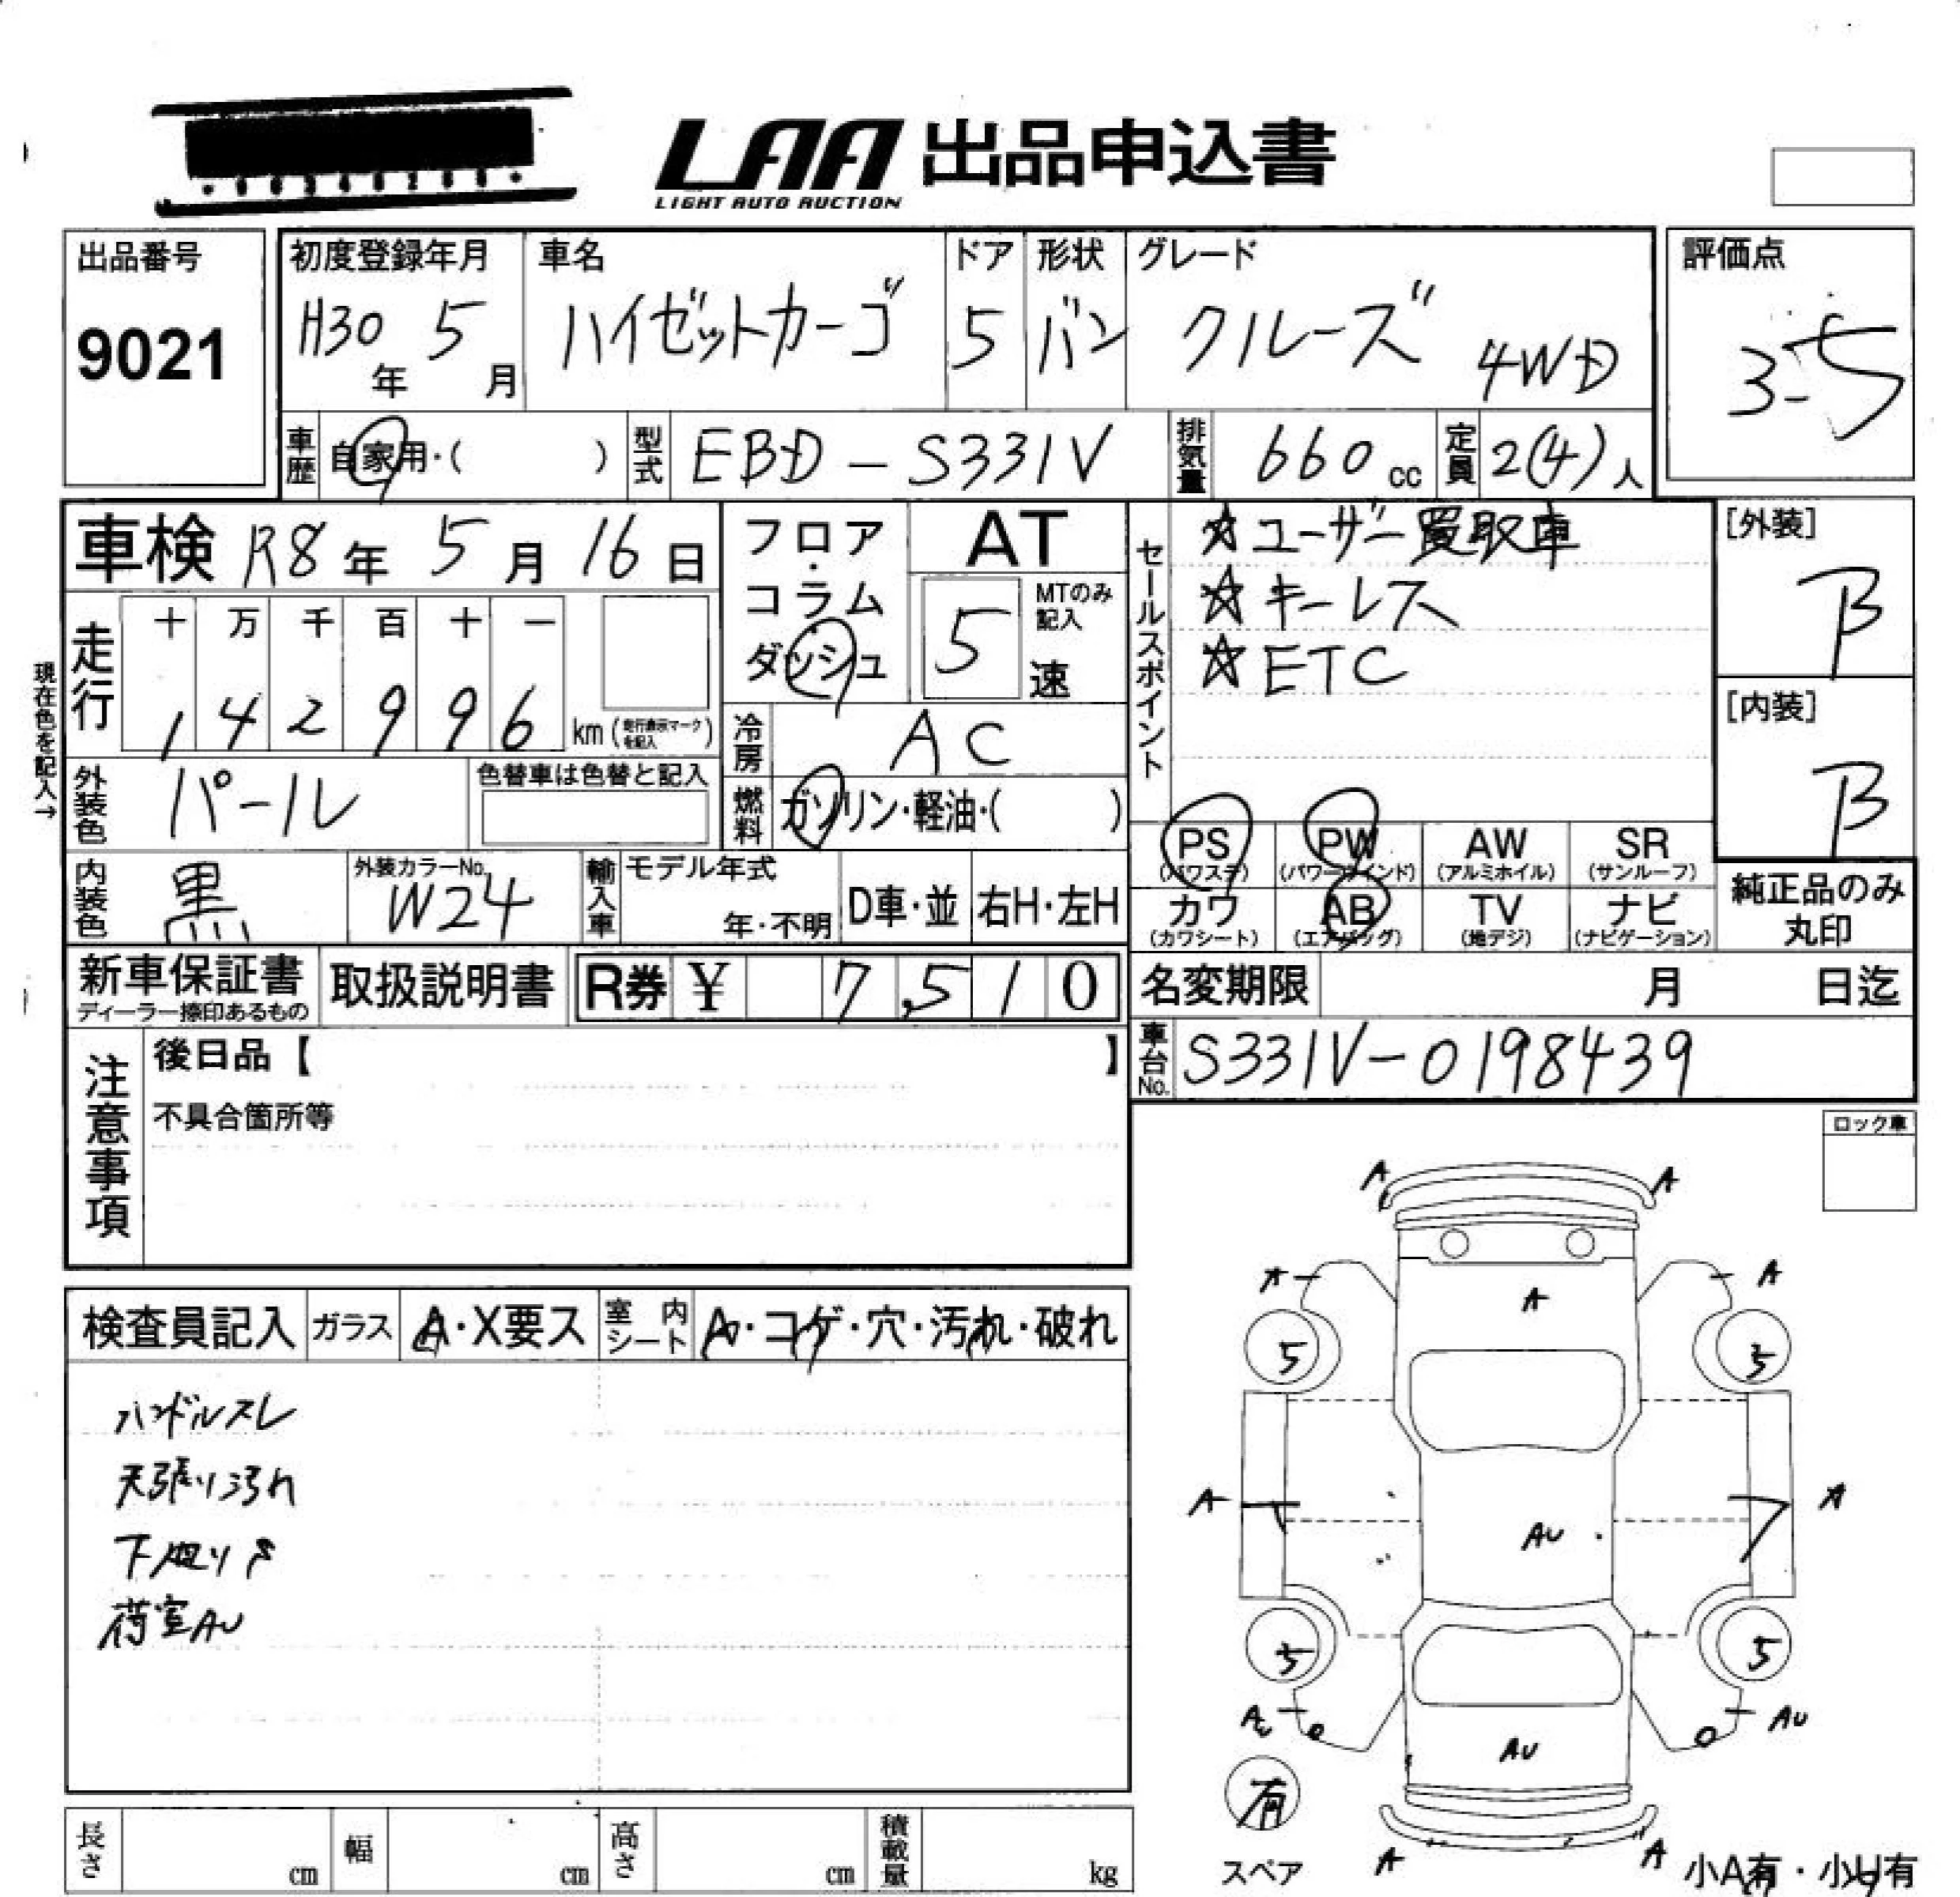 LAA 出品申込書
LIGHT AUTO AUCTION
出品番号
9021
初度登録年月
H30年 5月
車名
ハイゼットカーゴ
ドア
5
形状
バン
グレード
クルーズ 4WD
評価点
3.5
車歴 自家用・( )
型式 EBD-S331V
排気量 660cc
定員 2(4)人
車検 R8年 5月 16日
フロア・コラム・ダッシュ
AT
MTのみ記入
5速
セールスポイント
☆ユーザー買取車
☆キーレス
☆ETC
[外装]
B
[内装]
B
現在色を記入→
走行
十 万 千 百 十 一
1 4 2 9 9 6 km (走行表示マークを記入)
冷房 AC
燃料 ガソリン・軽油・( )
外装色 パール
色替車は色替と記入
内装色 黒
外装カラーNo.
W24
輸入車
モデル年式
年・不明
D車・並
右H・左H
PS
(パワステ)
PW
(パワーウインド)
AW
(アルミホイル)
SR
(サンルーフ)
カワ
(カワシート)
AB
(エアバッグ)
TV
(地デジ)
ナビ
(ナビゲーション)
純正品のみ
丸印
新車保証書
ディーラー捺印あるもの
取扱説明書
R券 ¥ 7,510
名変期限 月 日迄
車台No. S331V-0198439
注意事項
後日品【 】
不具合箇所等
ロック車
検査員記入
ガラス A・X要ス
室内シート A・コゲ・穴・汚れ・破れ
ハンドルスレ
天張り汚れ
下廻りS
荷室AU
A A
A A
A
5 5
A A
AU
5 5
AU AU
AU
有
スペア
A A
小A有・小U有
長さ cm
幅 cm
高さ cm
積載量 kg